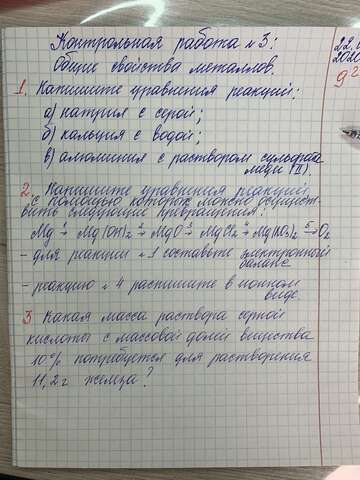 Контрольная работа №3:
Общие свойства металлов.
1. Напишите уравнения реакций:
а) натрия с серой;
б) кальция с водой;
в) алюминия с раствором сульфата
меди (II).
2. Напишите уравнения реакций,
с помощью которых можно осущест-
вить следующие превращения:
Mg →1 Mg(OH)2 →2 MgO →3 MgCl2 →4 Mg(NO3)2 →5 O2
- для реакции №1 составьте электронный
баланс
- реакцию №4 распишите в ионном
виде.
3 Какая масса раствора серной
кислоты с массовой долей вещества
10% потребуется для растворения
11,2 г железа?
22.
2020
9 г